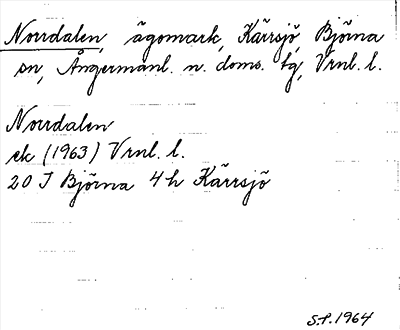 Norrdalen, ägomark, Kärrsjö, Björna
sn, Ångermanl. n. doms. tg, Vrnl. l.
Norrdalen
ek (1963) Vrnl. l.
20 J Björna 4h Kärrsjö
S.P. 1964